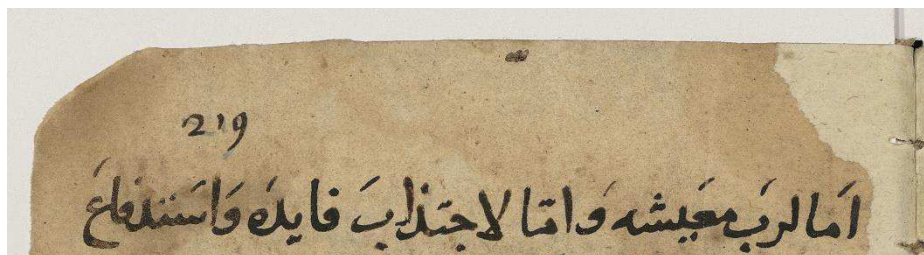 219
اما لرب معيشه واما لاجتذاب فايده واستدفاع